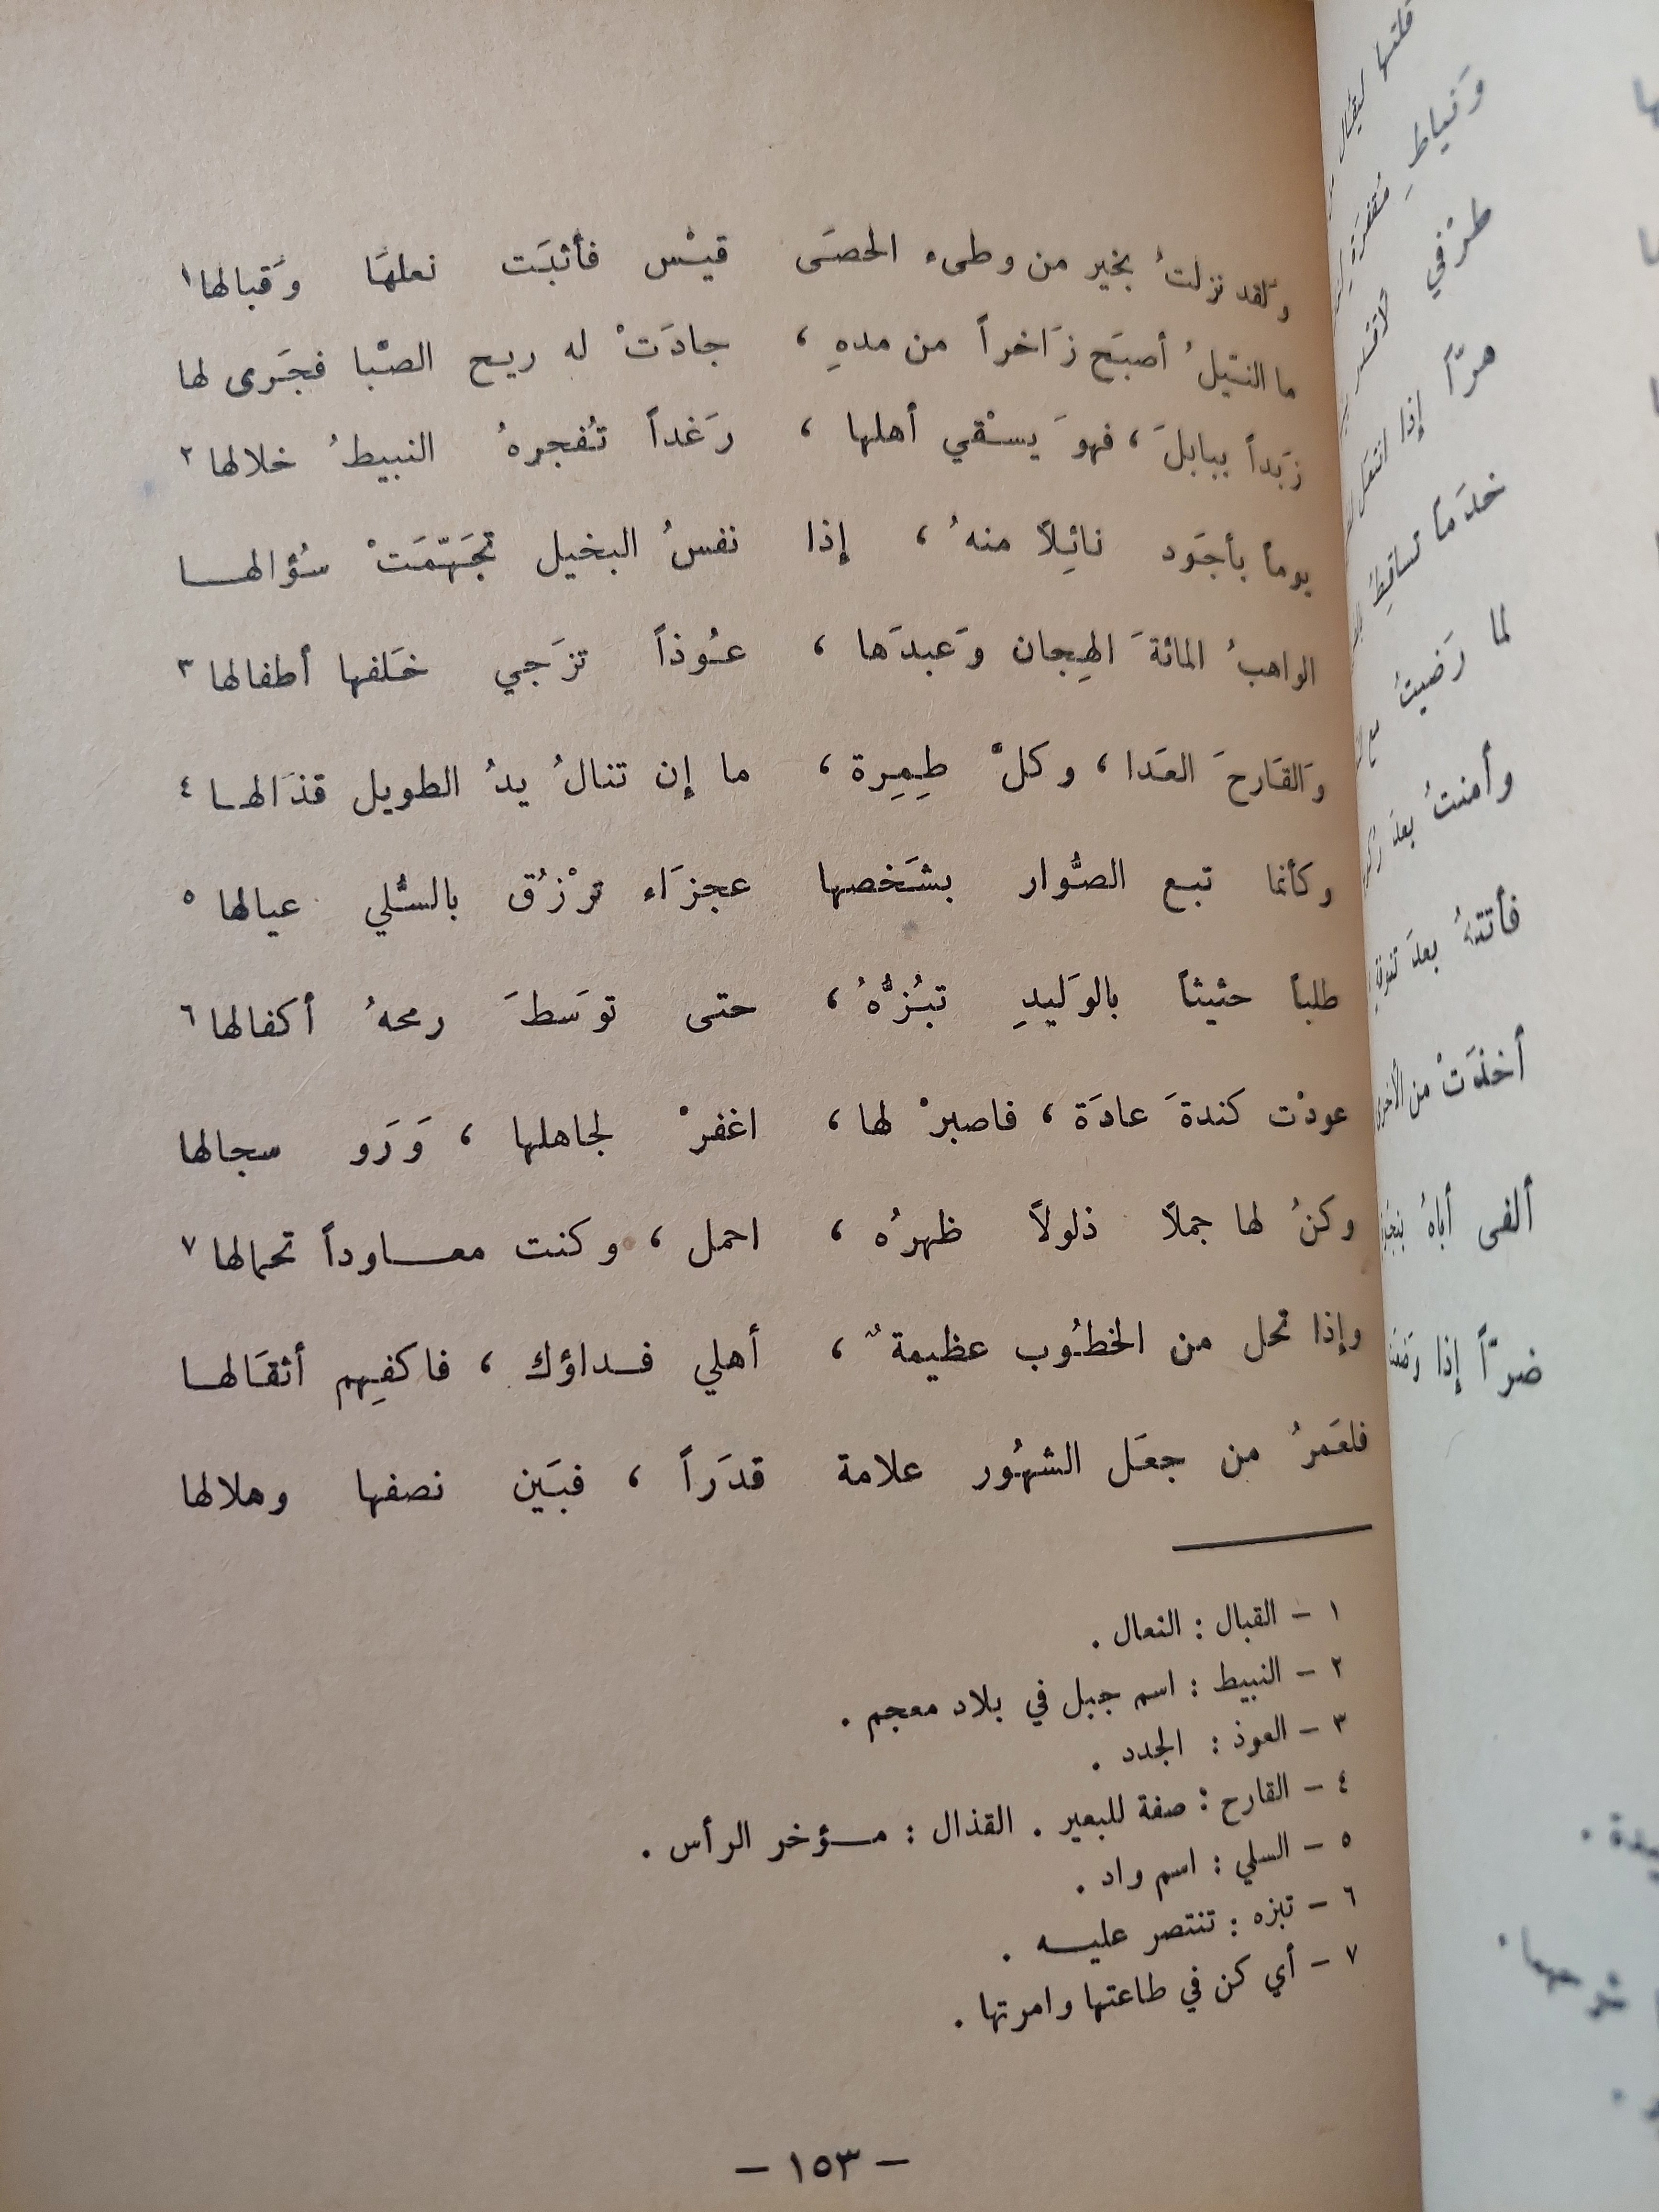 وَلقد نزلتُ بخير من وطىء الحصَى قيْس فأثبَت نعلهَا وَقبالها١
ما النيْلُ أصبَح زَاخراً من مدهِ ، جادَتْ له ريح الصْبا فجَرى لها
زَبداً ببابلَ ، فهوَ يسْقي أهلها ، رَغداً تُفجرهُ النبيطُ خلالها٢
يوماً بأجَود نائِلاً منهُ ، إذا نفسُ البخيل تجَهّمَتْ سُؤالها
الواهبُ المائةَ الهِجان وَعبدَها ، عُوذاً تزَجي خَلفها أطفالها٣
وَالقَارحَ العَدا ، وكلْ طِمِرة ، ما إن تنالُ يدُ الطويل قذَالها٤
وكأنما تبع الصُّوار بشَخصها عجزَاء ترْزُق بالسُّلي عيالها٥
طلباً حثيثاً بالوَليدِ تبُزُّهُ ، حتى توَسطَ رمحهُ أكفالها٦
عودْت كندةَ عادَة ، فاصبرْ لها ، اغفرْ لجاهلها ، وَرَو سجالها
وكنُ لها جملاً ذلولاً ظهرُه ، احمل ، وكنت معاوداً تحمالها٧
وإذا تحل من الخطُوب عظيمةٌ ، أهلي فداؤك ، فاكفِهم أثقَالها
فلعَمرُ من جعَل الشهُور علامة قدَراً ، فبَين نصفها وهلالها
١ – القبال : النعال .
٢ – النبيط : اسم جبل في بلاد معجم .
٣ – العوذ : الجدد .
٤ – القارح : صفة للبعير . القذال : مؤخر الرأس .
٥ – السلي : اسم واد .
٦ – تبزه : تنتصر عليه .
٧ – أي كن في طاعتها وامرتها .
– ١٥٣ –
طرْفي
هرّاً إذا
خدَماً تساقِطُ
لما رَضيتُ
وأمنتُ بعدَ
فأتتهُ بعدَ
أخذَتْ من الأخرى
ألفى أباهُ
ضرّاً إذا